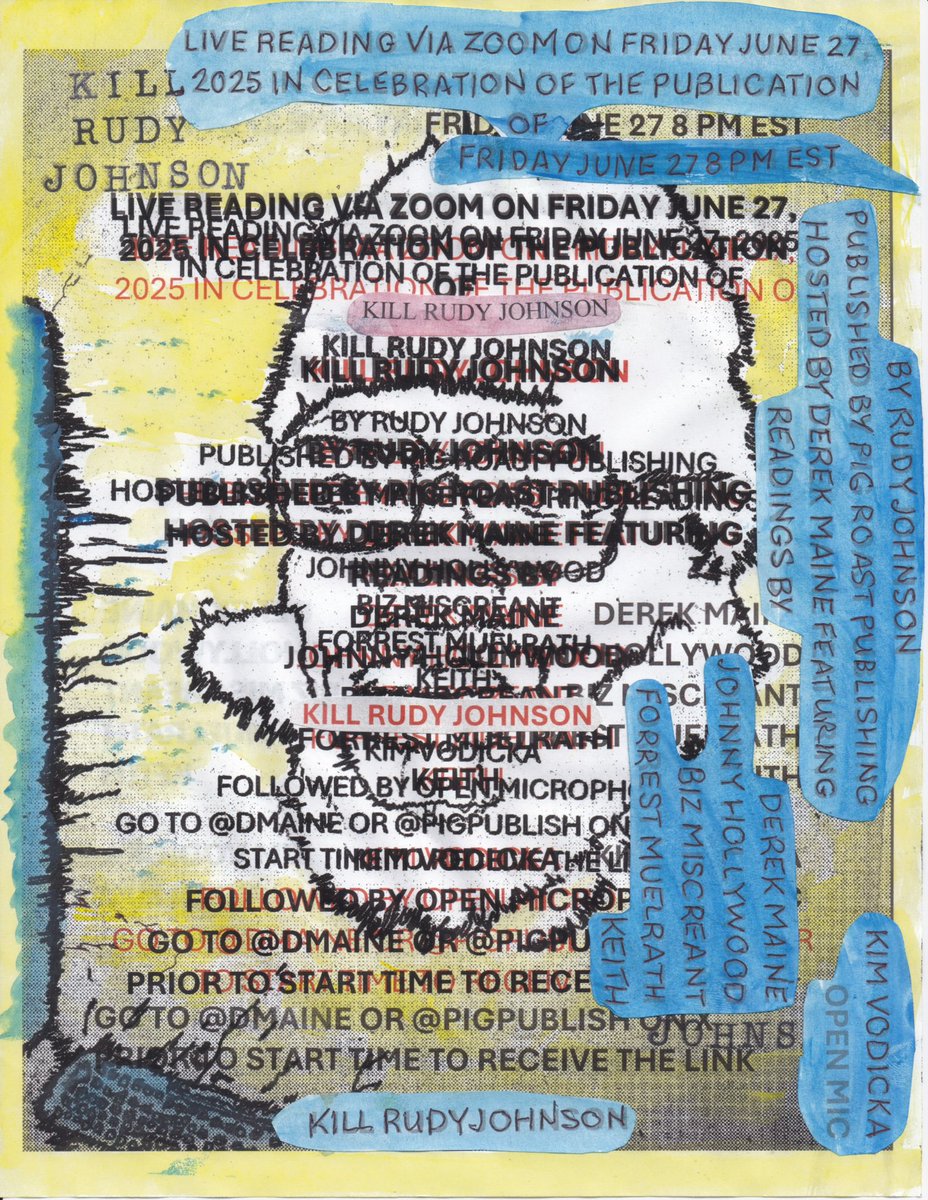 LIVE READING VIA ZOOM ON FRIDAY JUNE 27,
2025 IN CELEBRATION OF THE PUBLICATION
OF
KILL
RUDY
JOHNSON
JUNE 27 8 PM EST
FRIDAY JUNE 27 8 PM EST
LIVE READING VIA ZOOM ON FRIDAY JUNE 27,
LIVE READING VIA ZOOM ON FRIDAY JUNE 27, 2025
2025 IN CELEBRATION OF THE PUBLICATION
IN CELEBRATION OF THE PUBLICATION OF
2025 IN CELEBRATION OF THE PUBLICATION O
OF
KILL RUDY JOHNSON
KILL RUDY JOHNSON
KILL RUDY JOHNSON
BY RUDY JOHNSON
BY RUDY JOHNSON
PUBLISHED BY PIG ROAST PUBLISHING
PUBLISHED BY PIG ROAST PUBLISHING
HOSTED BY DEREK MAINE FEATURING
JOHNNY HOLLYWOOD
READINGS BY
BIZ MISCREANT
DEREK MAINE
DEREK MAIN
FORREST MUELRATH
JOHNNY HOLLYWOOD
OLLYWOOD
KEITH
BIZ MISCREANT
KILL RUDY JOHNSON
FORREST MUELRATH
KIM VODICKA
KEITH
FOLLOWED BY OPEN MICROPHO
GO TO @DMAINE OR @PIGPUBLISH ON
START TIME
KIM VODICKA
FOLLOWED BY OPEN MICROP
GO TO @DMAINE OR @PIGPU
PRIOR TO START TIME TO RECE
GO TO @DMAINE OR @PIGPUBLISH ON X
JOHNS
PRIOR TO START TIME TO RECEIVE THE LINK
KILL RUDY JOHNSON
BY RUDY JOHNSON
PUBLISHED BY PIG ROAST PUBLISHING
HOSTED BY DEREK MAINE FEATURING
READINGS BY
DEREK MAINE
JOHNNY HOLLYWOOD
BIZ MISCREANT
FORREST MUELRATH
KEITH
KIM VODICKA
OPEN MIC